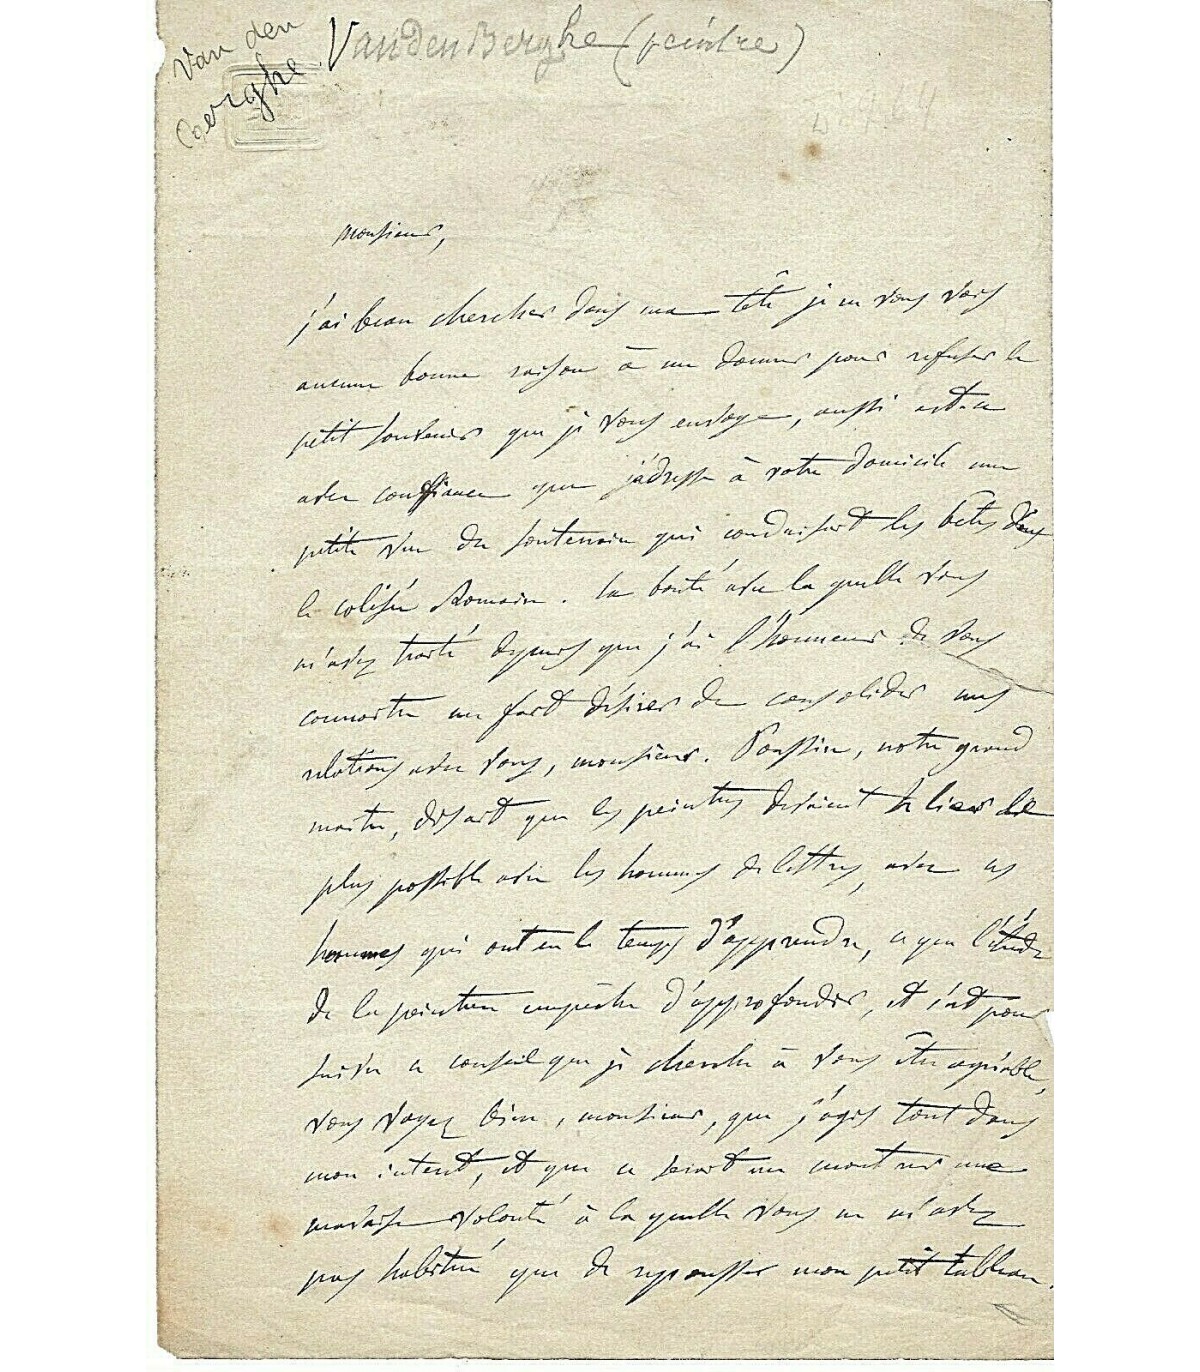 Van den
Berghe
VandenBerghe (peintre)
monsieur,
j'ai beau chercher dans ma tête je ne vous vois
aucune bonne raison à me donner pour refuser le
petit souvenir que je vous envoye, aussi est-ce
avec confiance que j'adresse à votre domicile une
petite vue du souterrain qui conduisait les bêtes dans
le colisée Romain. la bonté avec la quelle vous
m'avez traité depuis que j'ai l'honneur de vous
connaitre me fait désirer de consolider mes
relations avec vous, monsieur. Poussin, notre grand
maitre, disait que les peintres devaient se lier le
plus possible avec les hommes de lettres, avec ces
hommes qui ont eu le temps d'apprendre, ce que l'étude
de la peinture empêche d'approfondir, et c'est pour
suivre ce conseil que je cherche à vous être agréable,
vous voyez bien, monsieur, que j'agis tout dans
mon interet, et que ce serait me montrer une
mauvaise volonté à la quelle vous ne m'avez
pas habitué que de repousser mon petit tableau.